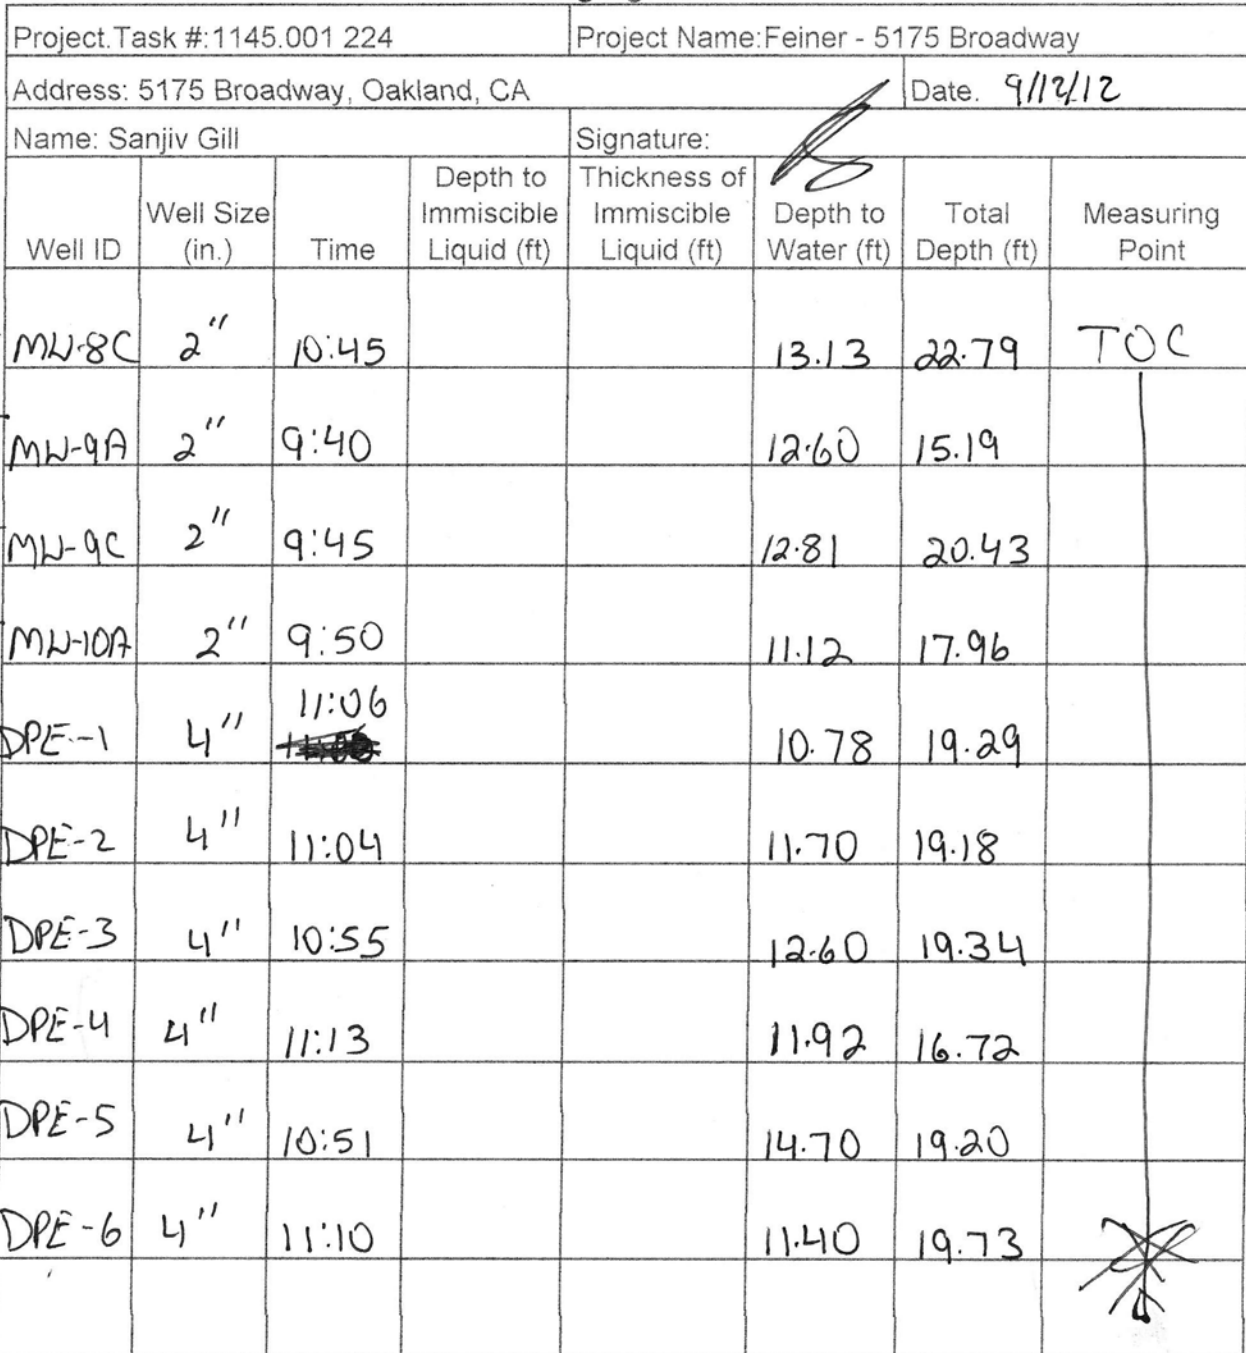 Project.Task #:1145.001 224 Project Name:Feiner - 5175 Broadway
Address: 5175 Broadway, Oakland, CA Date. 9/12/12
Name: Sanjiv Gill Signature:
Well ID Well Size (in.) Time Depth to Immiscible Liquid (ft) Thickness of Immiscible Liquid (ft) Depth to Water (ft) Total Depth (ft) Measuring Point
MW-8C 2" 10:45 13.13 22.79 TOC
MW-9A 2" 9:40 12.60 15.19
MW-9C 2" 9:45 12.81 20.43
MW-10A 2" 9:50 11.12 17.96
DPE-1 4" 11:06 10.78 19.29
DPE-2 4" 11:04 11.70 19.18
DPE-3 4" 10:55 12.60 19.34
DPE-4 4" 11:13 11.92 16.72
DPE-5 4" 10:51 14.70 19.20
DPE-6 4" 11:10 11.40 19.73